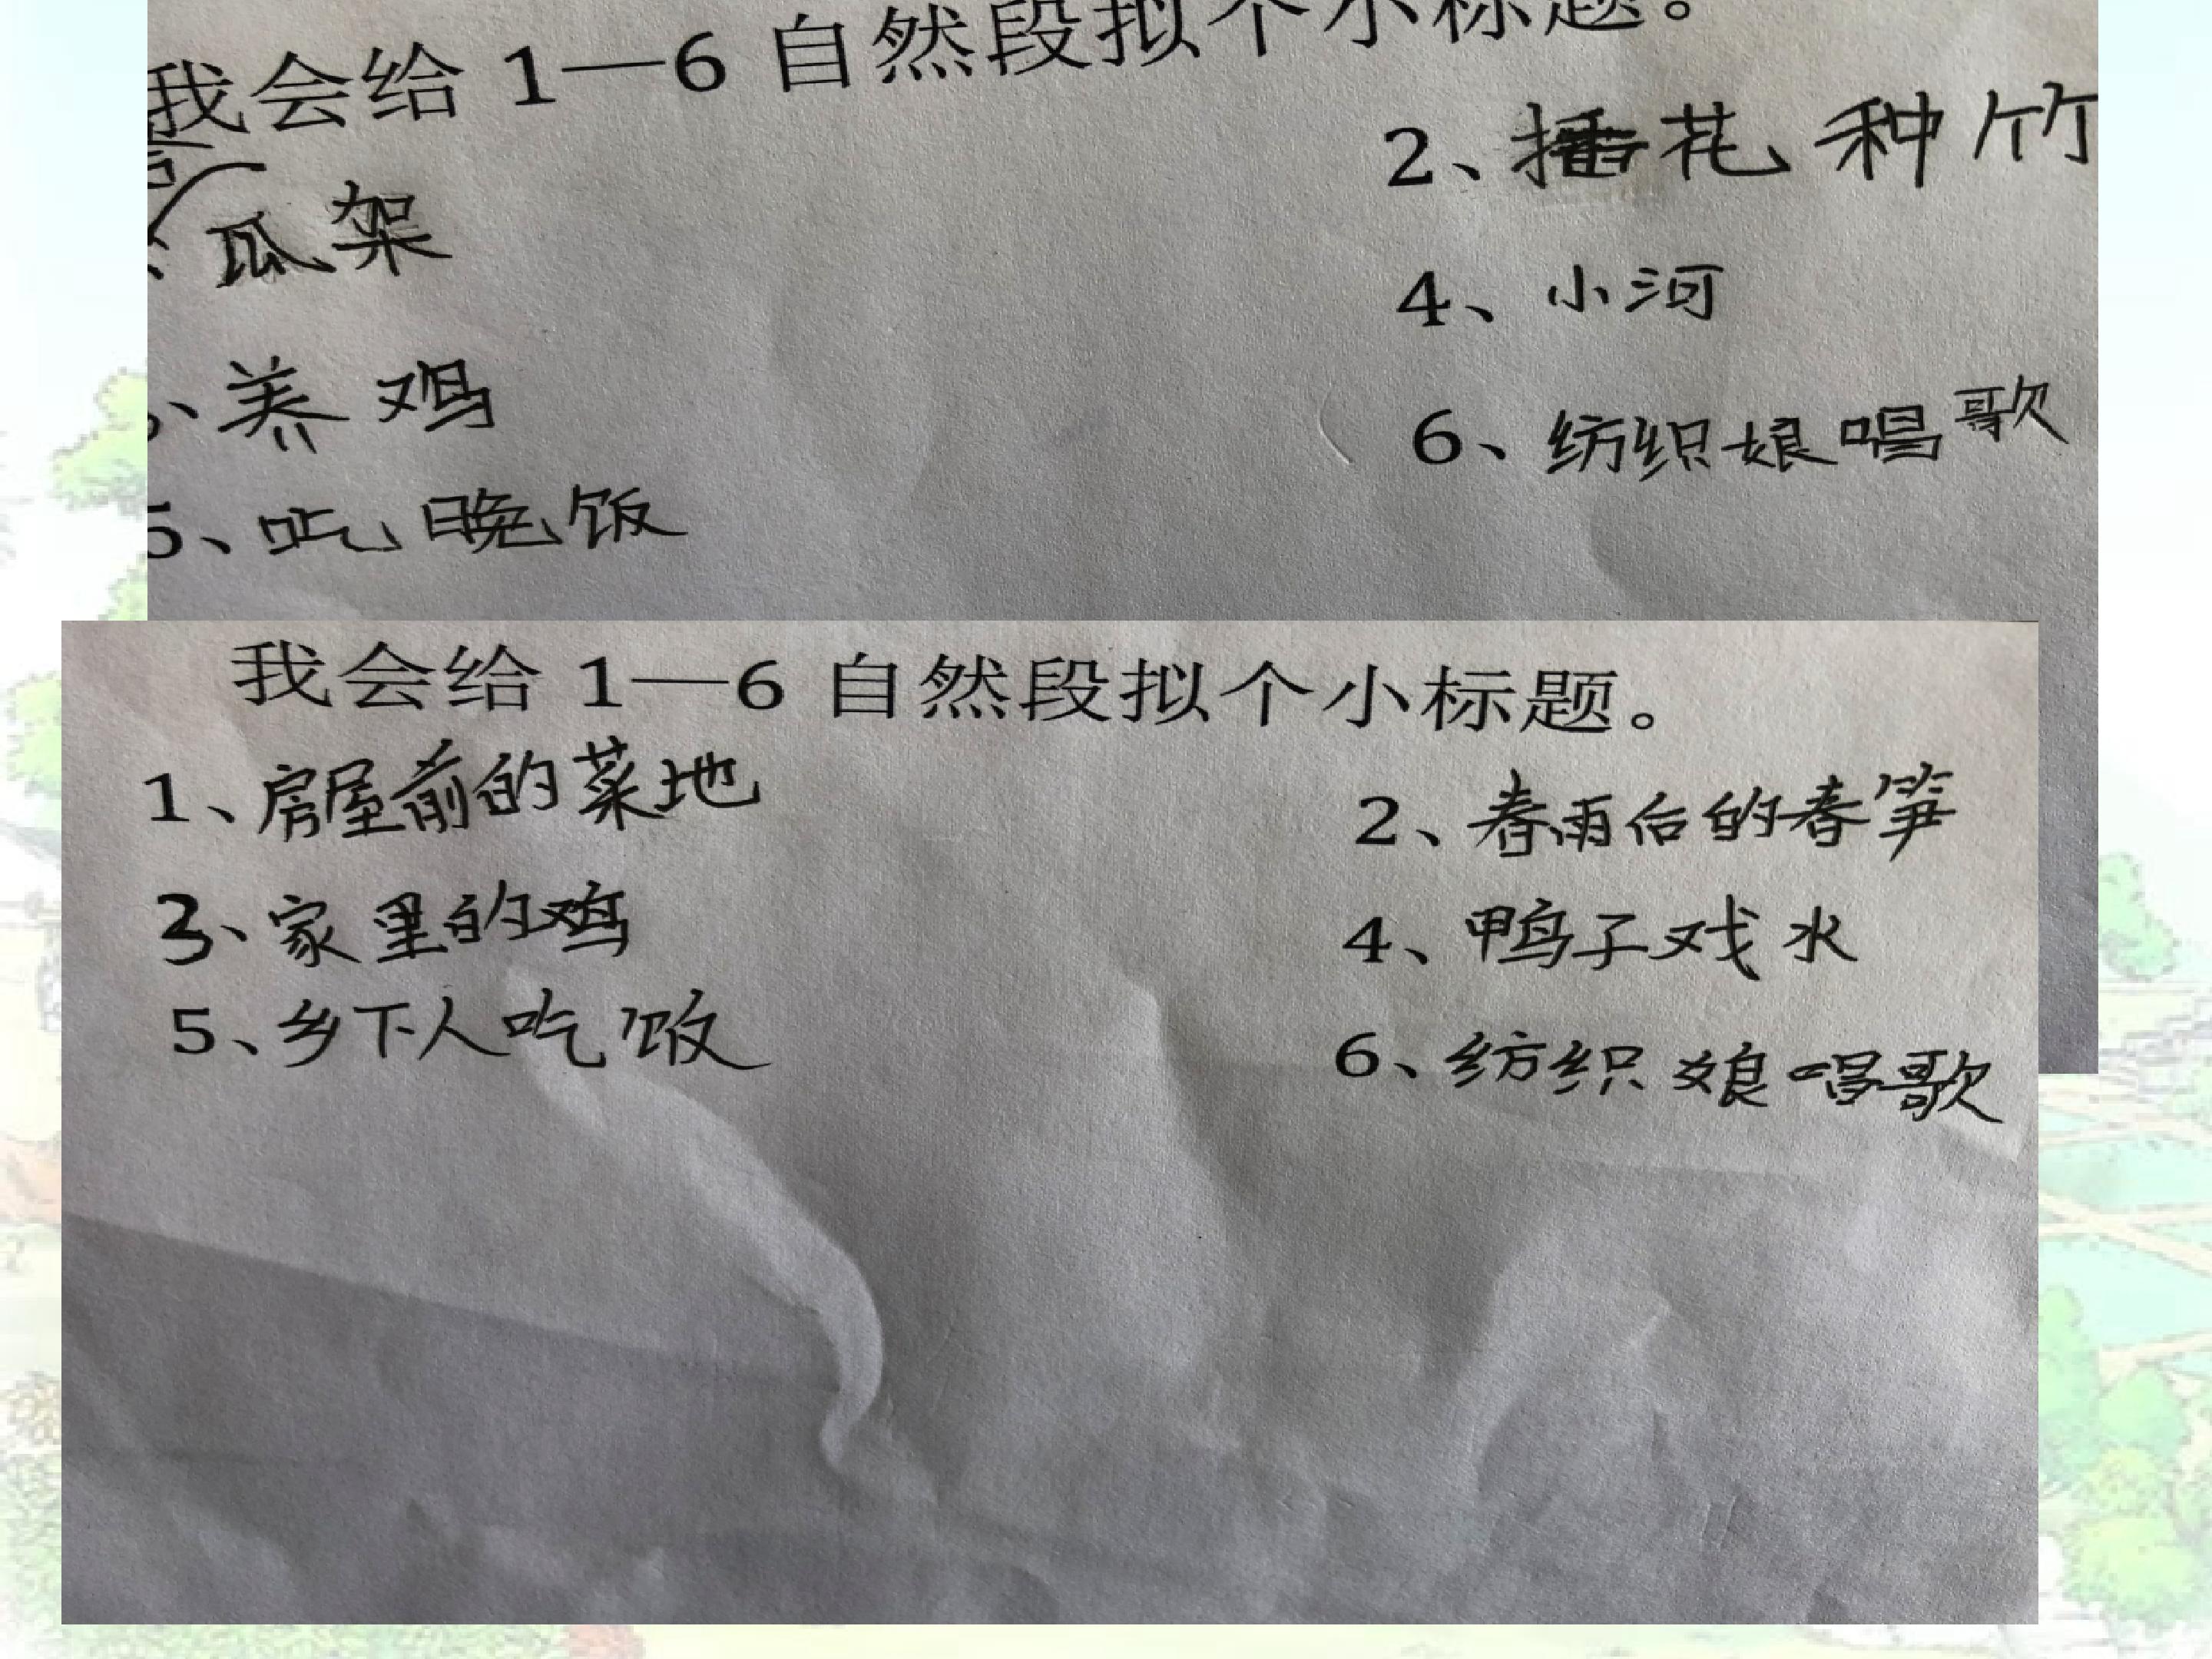 我会给 1—6 自然段拟个小标题。
瓜架
2、插花种竹
、养鸡
4、小河
5、吃晚饭
6、纺织娘唱歌
我会给 1—6 自然段拟个小标题。
1、房屋前的菜地
2、春雨后的春笋
3、家里的鸡
4、鸭子戏水
5、乡下人吃饭
6、纺织娘唱歌